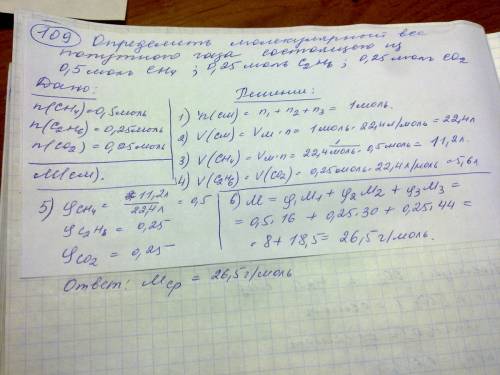 109 Определить молекулярный вес
попутного газа состоящего из
0,5 моль CH4 ; 0,25 моль C2H6 ; 0,25 моль CO2
Дано:
n(CH4)=0,5моль
n(C2H6)=0,25моль
n(CO2)=0,25моль
M(см).
Решение:
1) n(см) = n1 + n2 + n3 = 1моль.
2) V(см) = Vм · n = 1моль · 22,4л/моль = 22,4л
3) V(CH4) = Vм·n = 22,4 л/моль · 0,5моль = 11,2л.
4) V(C2H6) = V(CO2) = 0,25моль · 22,4л/моль = 5,6л
5) φCH4 = 11,2л/22,4л = 0,5
φC2H6 = 0,25
φCO2 = 0,25
6) M = φ1M1 + φ2M2 + φ3M3 =
= 0,5·16 + 0,25·30 + 0,25·44 =
= 8 + 18,5 = 26,5г/моль.
Ответ: Mср = 26,5г/моль